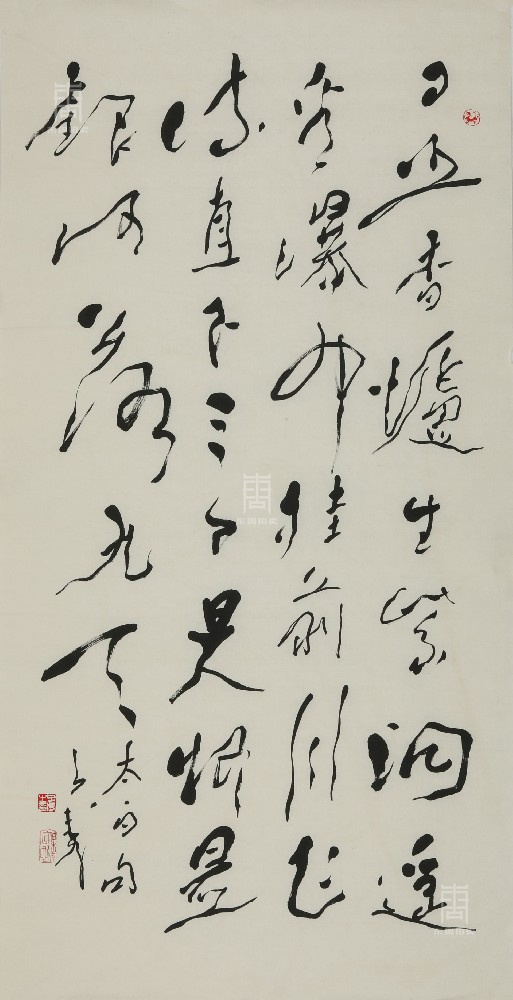 日照香爐生紫烟遥
看瀑布挂前川飛
流直下三千尺疑是
銀河落九天
太白句